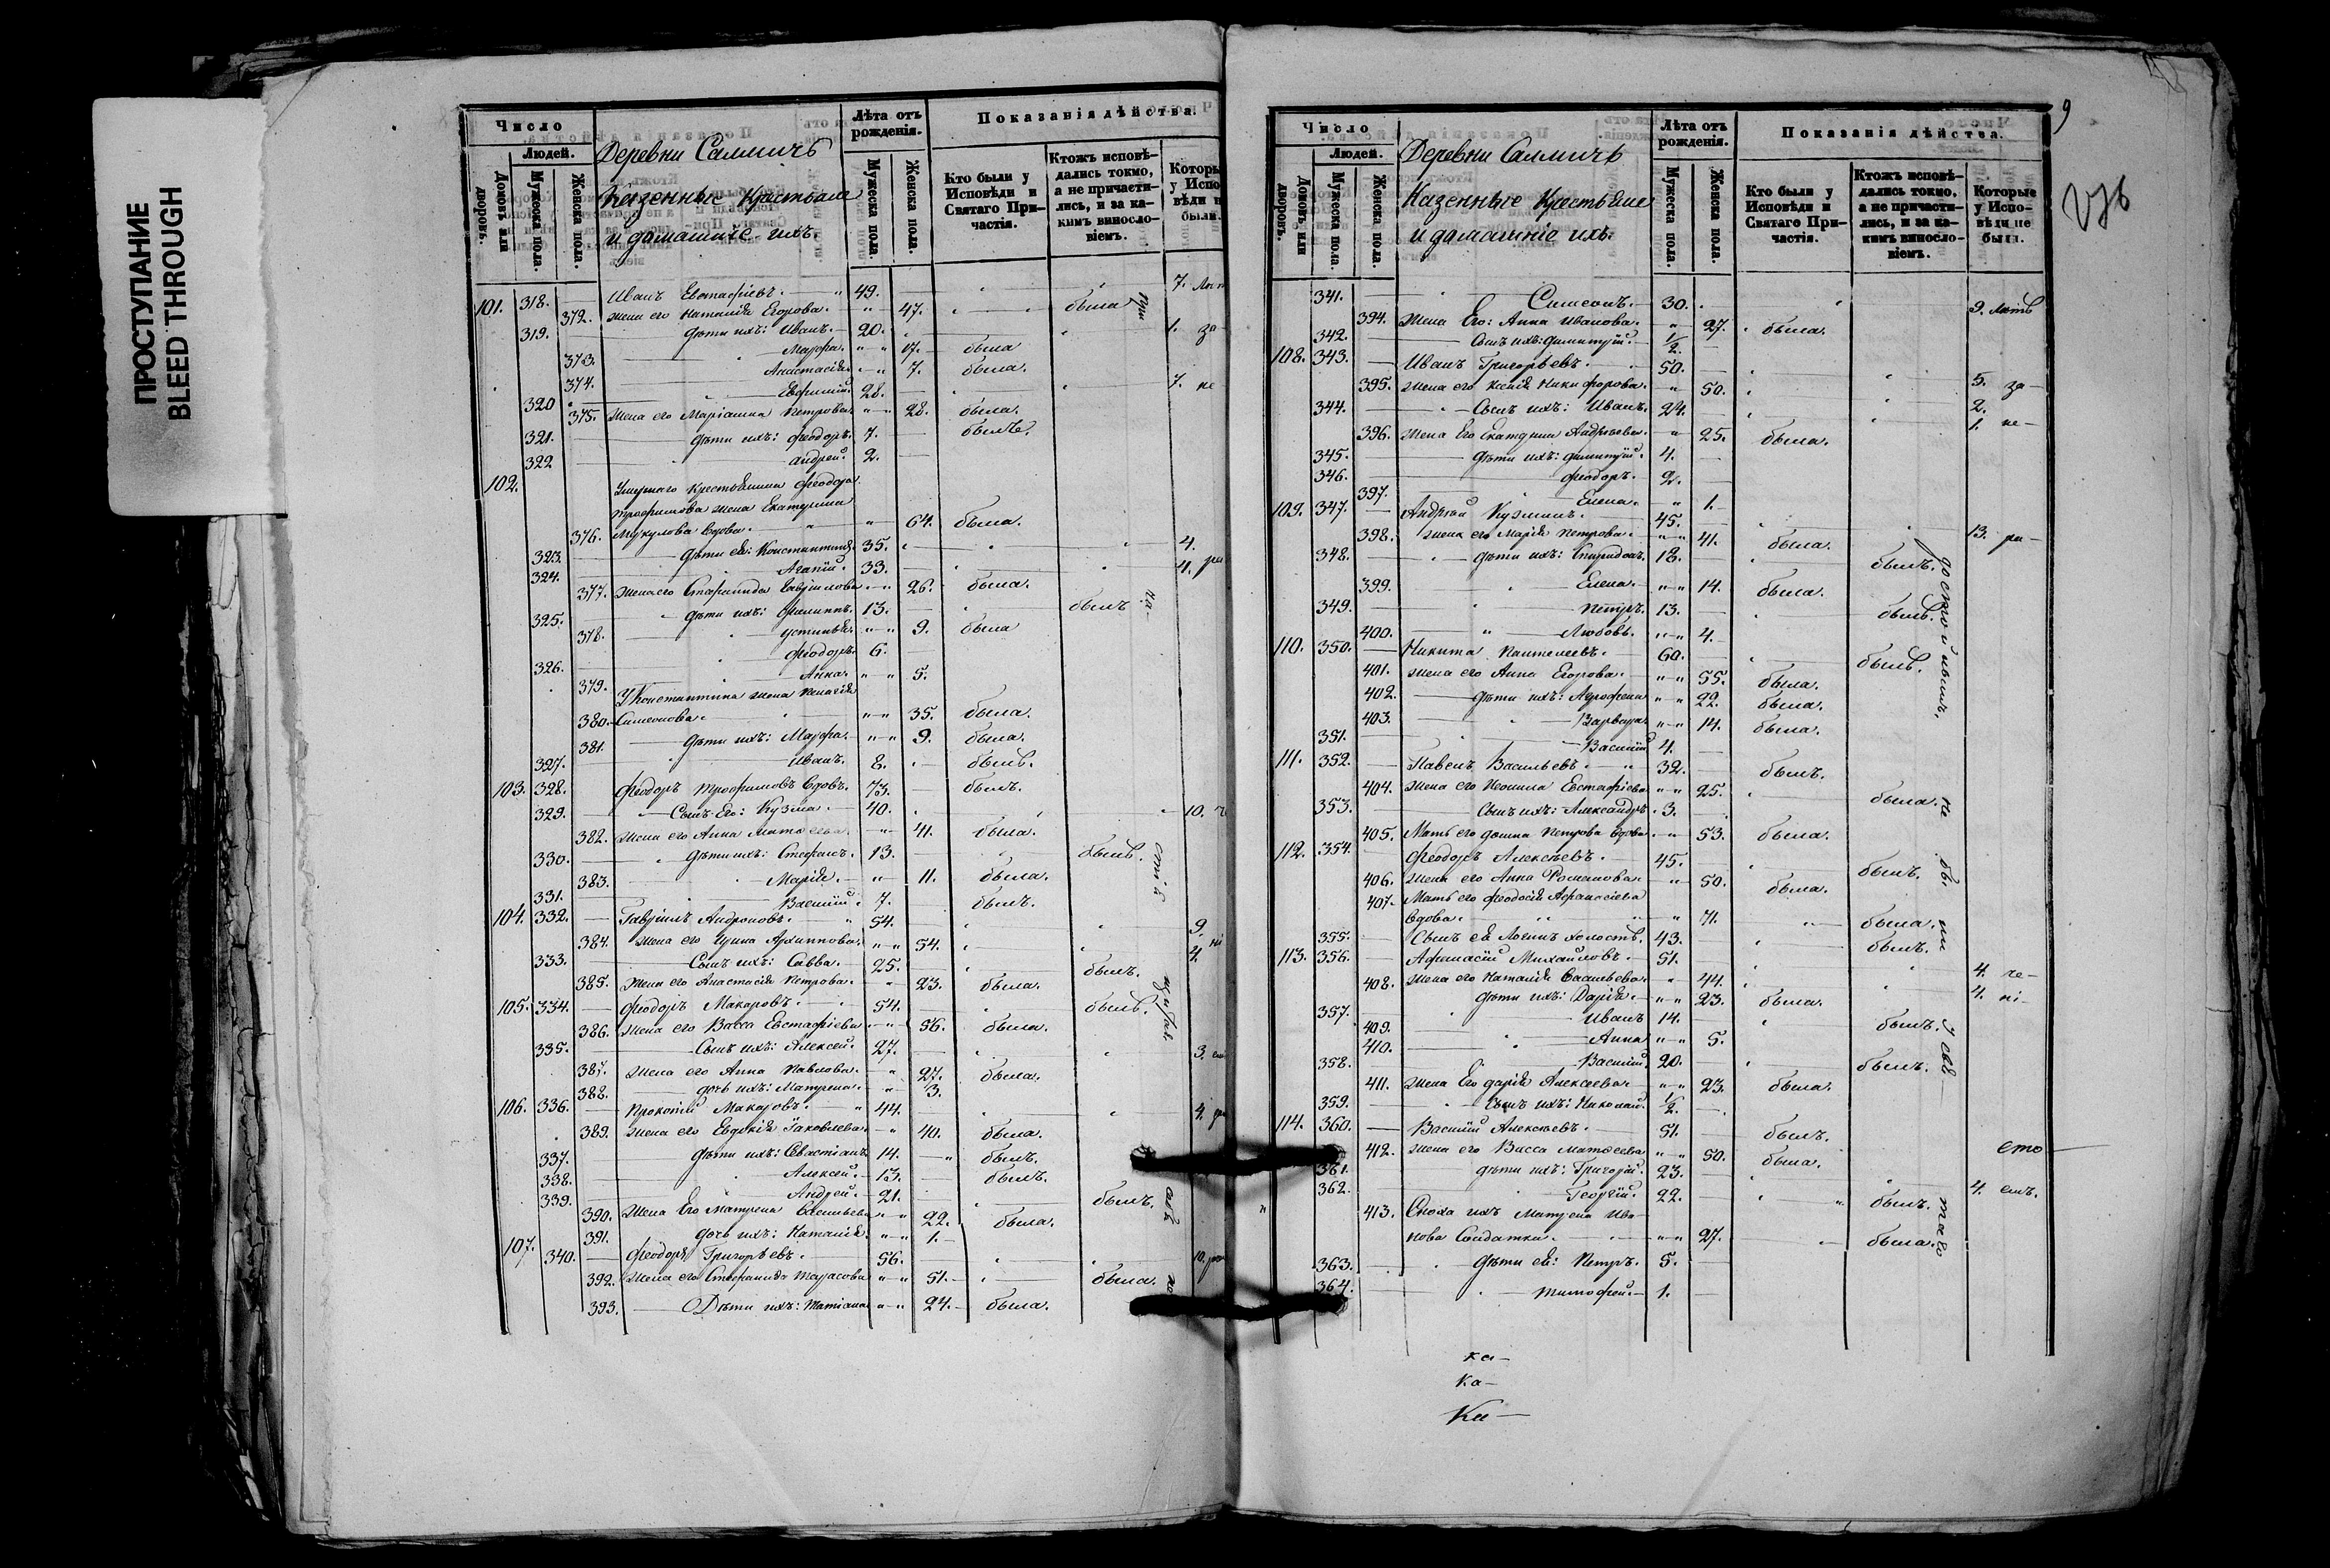 ПРОСТУПАНИЕ
BLEED THROUGH
Число
Людей.
Домовъ или дворовъ.
Мужеска пола.
Женска пола.
Деревни Саммичь
Казенные Крестьяне
и домашніе ихъ.
Лѣта отъ рожденія.
Мужеска пола.
Женска пола.
Показанія дѣйства.
Кто были у Исповѣди и Святаго Причастія.
Ктожъ исповѣдались токмо, а не причастились, и за какимъ винословіемъ.
Которы у Испо вѣди н были.
101. 318. Иванъ Евстафіевъ. 49. 7.
372. жена его Наталія Егорова. 47. была
319. дѣти ихъ: Иванъ. 20. 1. за
373. Марфа. 17. была
374. Анастасія. 7. была.
320 Евфимій. 28. 7. не
375. жена его Маріанна Петрова. 28. была.
321. дѣти ихъ: Феодоръ. 7. былъ.
322 Андрей. 2.
102. Умершаго крестьянина Феодора
Трофимова жена Екатерина
376. вдова. 64. была.
323. дѣти ея: Константинъ. 35. 4.
324. Агапій. 33. 4.
377. жена его Стефанида Гавріилова 26. была.
325. дѣти ихъ: Филиппъ. 13. былъ
378. Устинья. 9. была
326. Феодоръ. 6.
379. Анна. 5.
У Константина жена Пелагія
380. Симеонова. 35. была.
381. дѣти ихъ: Марфа. 9. была.
327. Иванъ. 8. былъ.
103. 328. Феодоръ Трофимовъ вдовъ. 73. былъ.
329. Сынъ Его: Кузма. 40. 10.
382. жена его Анна Матѳеева. 41. была.
330. дѣти ихъ: Стефанъ. 13. былъ.
383. Марія. 11. была.
331. Василій. 7. былъ.
104. 332. Гавріилъ Андроновъ. 54. 9.
384. жена его Ирина Архиппова. 54. 4.
333. Сынъ ихъ: Савва. 25. былъ.
385. жена его Анастасія Петрова. 23. была.
105. 334. Феодоръ Макаровъ. 54. былъ.
386. жена его Васса Евстафіева 56. была.
335. Сынъ ихъ: Алексей. 27. 3.
387. жена его Анна Павлова. 27. была.
388. дочь ихъ: Матрена. 3.
106. 336. Прокопій Макаровъ. 44. 4.
389. жена его Евдокія Іаковлева. 40. была.
337. дѣти ихъ: Севастіанъ 14. былъ.
338. Алексей. 13. былъ.
339. Андрей. 21. былъ.
390. жена Его Матрена Васильева 22. была.
391. дочь ихъ: Наталія. 1.
107. 340. Феодоръ Григорьевъ. 56. 10.
392. жена его Стефанида Тарасова 51. была.
393. Дѣти ихъ: Татіана 24. была.
9
Число
Людей.
Домовъ или дворовъ.
Мужеска пола.
Женска пола.
Деревни Саммичь
Казенные Крестьяне
и домашніе ихъ.
Лѣта отъ рожденія.
Мужеска пола.
Женска пола.
Показанія дѣйства.
Кто были у Исповѣди и Святаго Причастія.
Ктожъ исповѣдались токмо, а не причастились, и за какимъ винословіемъ.
Которые у Исповѣди не были.
341. Симеонъ. 30. 9. лѣтъ
394. жена Его: Анна Иванова. 27. была.
342. Сынъ ихъ: Димитрій. 1/2.
108. 343. Иванъ Григорьевъ. 50. 5. за-
395. жена его Ксенія Никифорова. 50. 2.
344. Сынъ ихъ: Иванъ. 24. 1. не-
396. жена Его Екатерина Андреева. 25. была.
345. дѣти ихъ: Димитрій. 4.
346. Феодоръ. 2.
397. Елена. 1.
109. 347. Андрей Кузминъ. 45. 13. ра-
398. жена его Марія Петрова. 41. была.
348. дѣти ихъ: Спиридонъ. 18. былъ.
399. Елена. 14. была.
349. Петръ. 13. былъ.
400. Любовь. 4.
110. 350. Никита Пантелеевъ. 60. былъ.
401. жена его Анна Егорова. 55. была.
402. дѣти ихъ: Агрофена 22. была.
403. Варвара. 14. была.
351. Василій 4.
111. 352. Павелъ Васильевъ. 32. былъ.
404. жена его Неонила Евстафіева 25. была.
353. Сынъ ихъ: Александръ. 3.
405. Мать его Домна Петрова вдова. 53. была.
112. 354. Феодоръ Алексѣевъ. 45. былъ.
406. жена его Анна Романова. 50. была.
407. Мать его Феодосія Афанасіева
вдова. 71. была.
355. Сынъ ея Логинъ холостъ. 43. былъ.
113. 356. Афанасій Михайловъ. 51. 4. че-
408. жена его Наталія Васильева. 44. 4. ні-
дѣти ихъ: Дарія. 23. была.
357. 409. Иванъ 14. былъ.
410. Анна 5.
358. Василій. 20. былъ.
411. жена Его Дарія Алексеева. 23. была.
359. Сынъ ихъ: Николай. 1/2.
114. 360. Василій Алексѣевъ. 51. былъ.
412. жена его Васса Матѳеева 50. была.
361. дѣти ихъ: Григорій. 23. 4. емъ.
362. Георгій. 22. былъ.
413. Сноха ихъ Матрена Ива-
нова Солдатка. 27. была.
363. дѣти ея: Петръ. 5.
364. Тимофей. 1.
ка-
ка-
Ка-